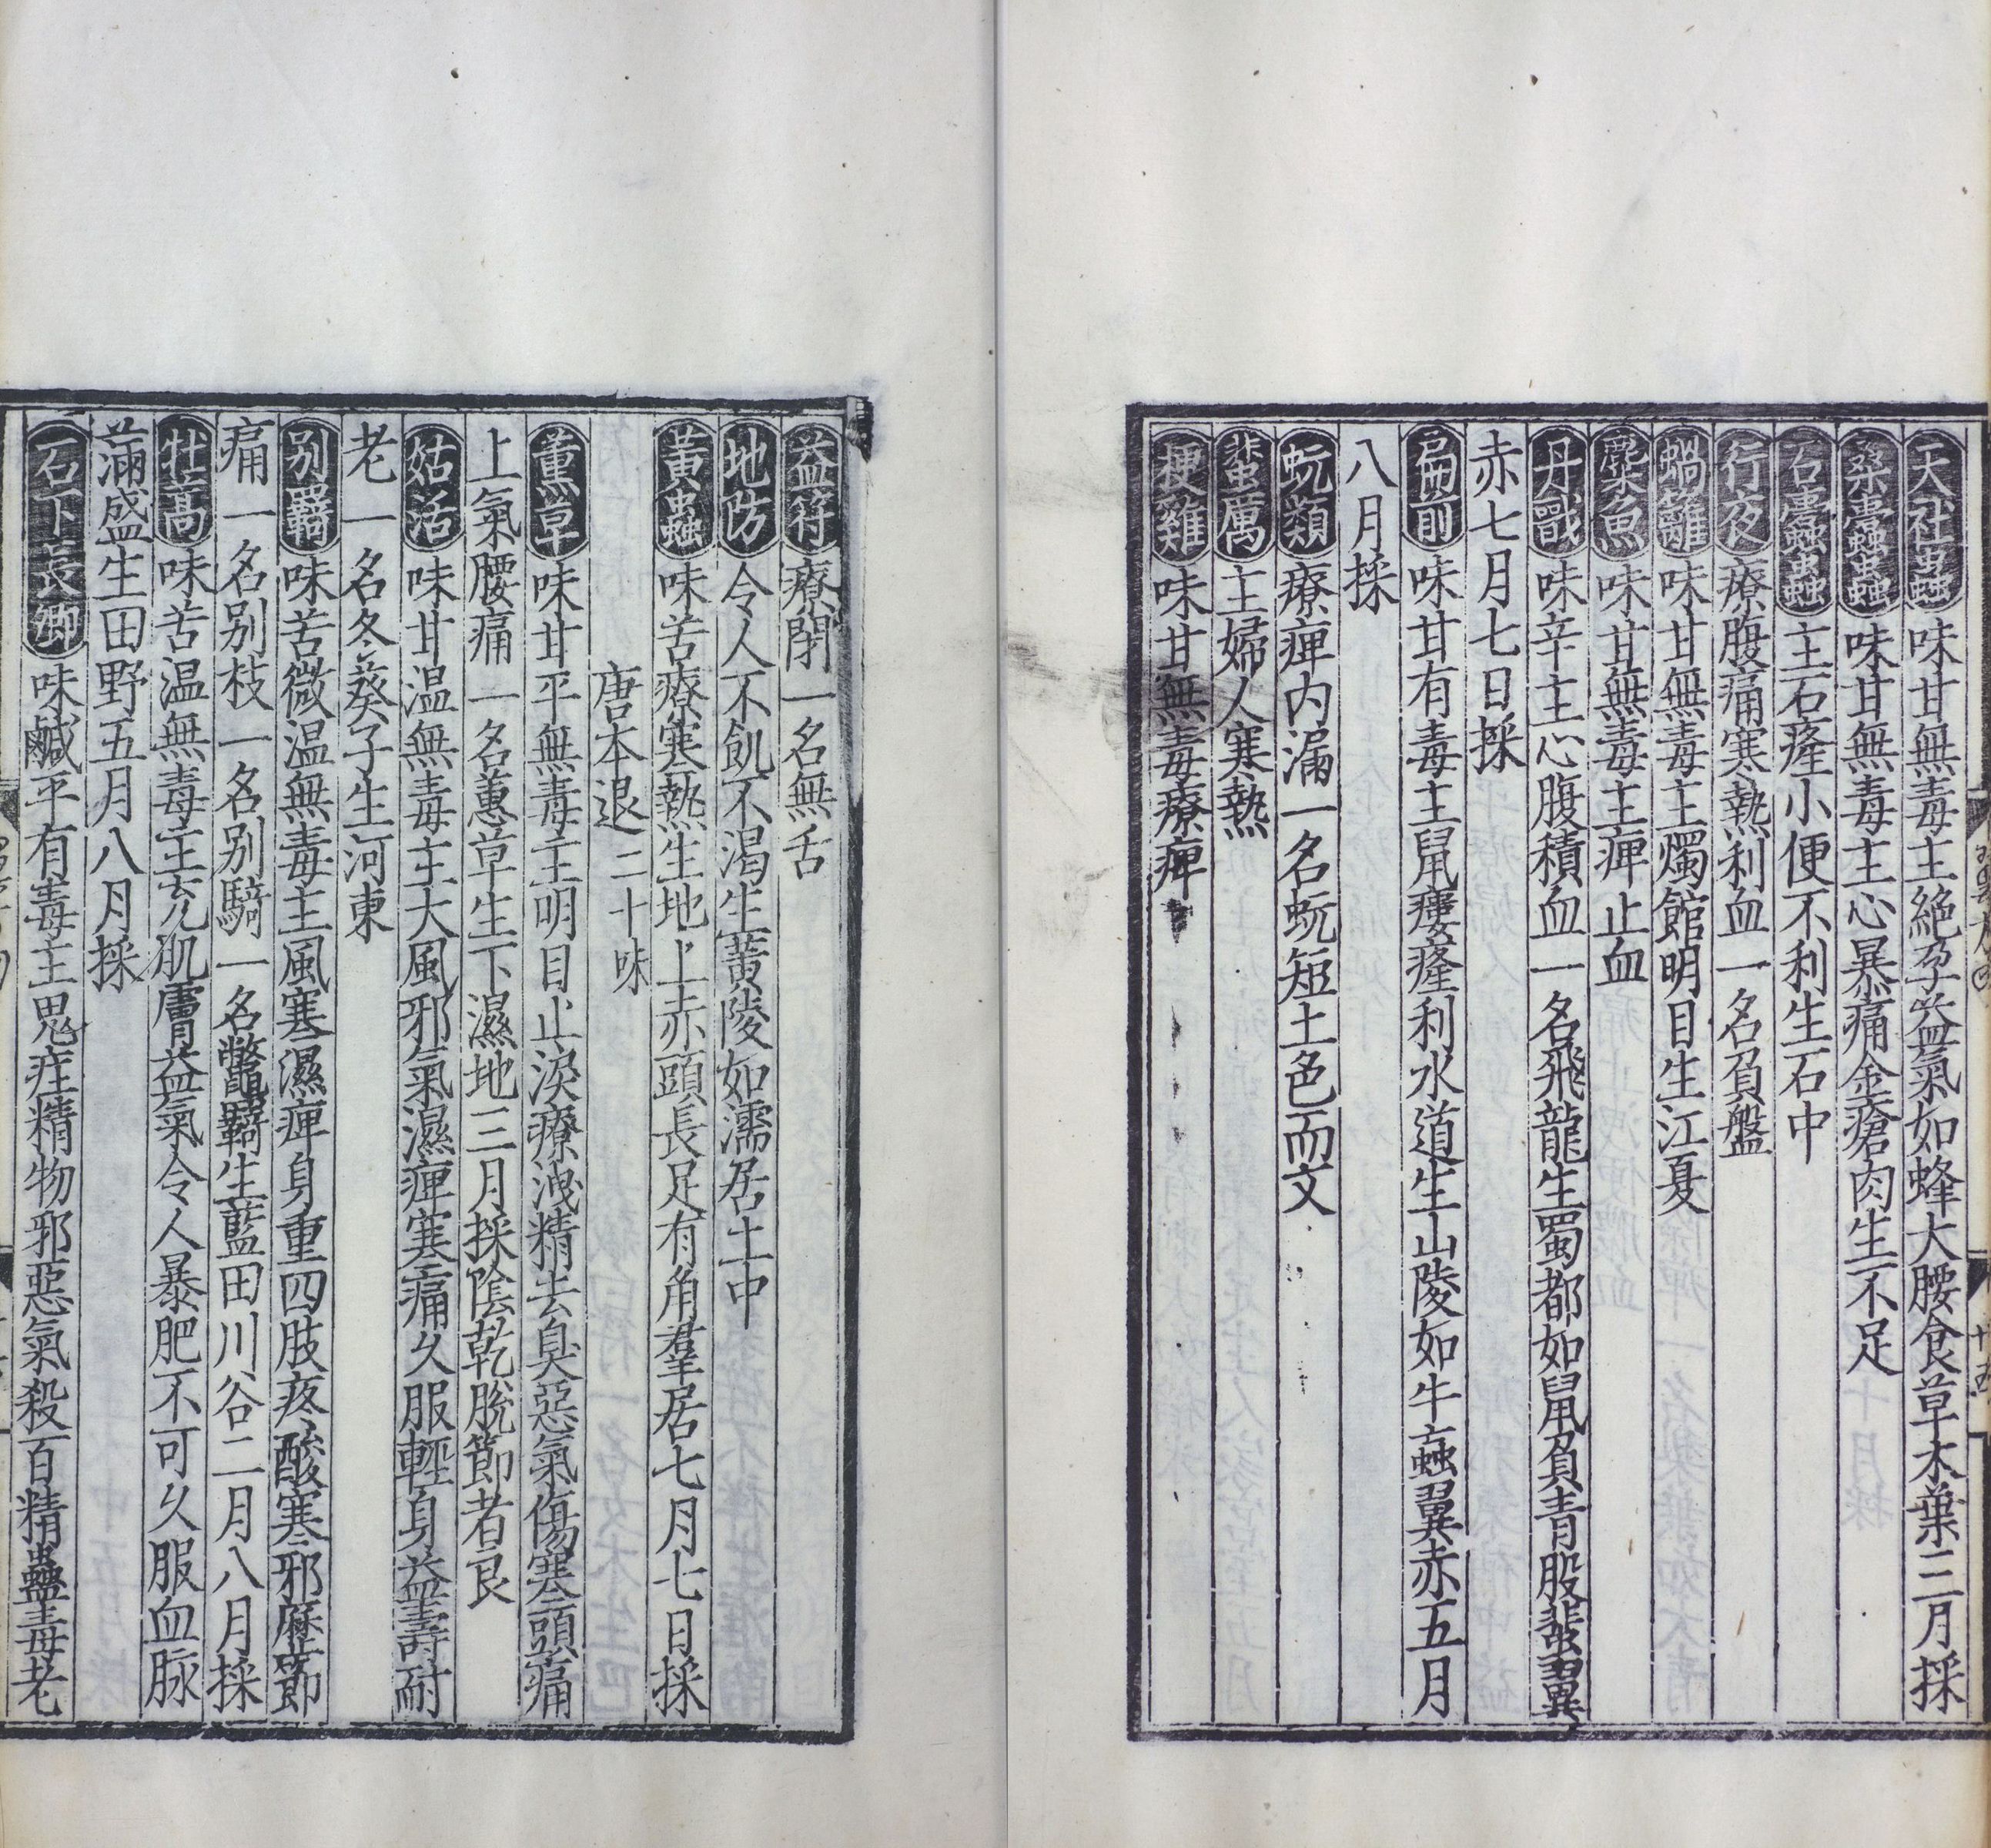 天社蟲味甘無毒主絶孕益氣如蜂大腰食草木葉三月採
桑蠹蟲味甘無毒主心暴痛金瘡肉生不足
石蠹蟲主石癃小便不利生石中
行夜療腹痛寒熱利血一名負盤
蝸籬味甘無毒主燭館明目生江夏
麋魚味甘無毒主痺止血
丹戩味辛主心腹積血一名飛龍生蜀都如鼠負青股蜚翼
赤七月七日採
扁前味甘有毒主鼠瘻癃利水道生山陵如牛蝱翼赤五月
八月採
蚖類療痺内漏一名蚖短土色而文
蜚厲主婦人寒熱
梗雞味甘無毒療痺
益符療閉一名無舌
地防令人不飢不渴生黃陵如濡居土中
黃蟲味苦療寒熱生地上赤頭長足有角羣居七月七日採
唐本退二十味
薰草味甘平無毒主明目止淚療洩精去臭惡氣傷寒頭痛
上氣腰痛一名蕙草生下濕地三月採陰乾脫節者良
姑活味甘温無毒主大風邪氣濕痺寒痛久服輕身益壽耐
老一名冬葵子生河東
别羇味苦微温無毒主風寒濕痺身重四肢疼酸寒邪歴節
痛一名别枝一名别騎一名鼈羇生藍田川谷二月八月採
牡蒿味苦温無毒主充肌膚益氣令人暴肥不可久服血脉
滿盛生田野五月八月採
石下長卿味鹹平有毒主鬼疰精物邪惡氣殺百精蠱毒老